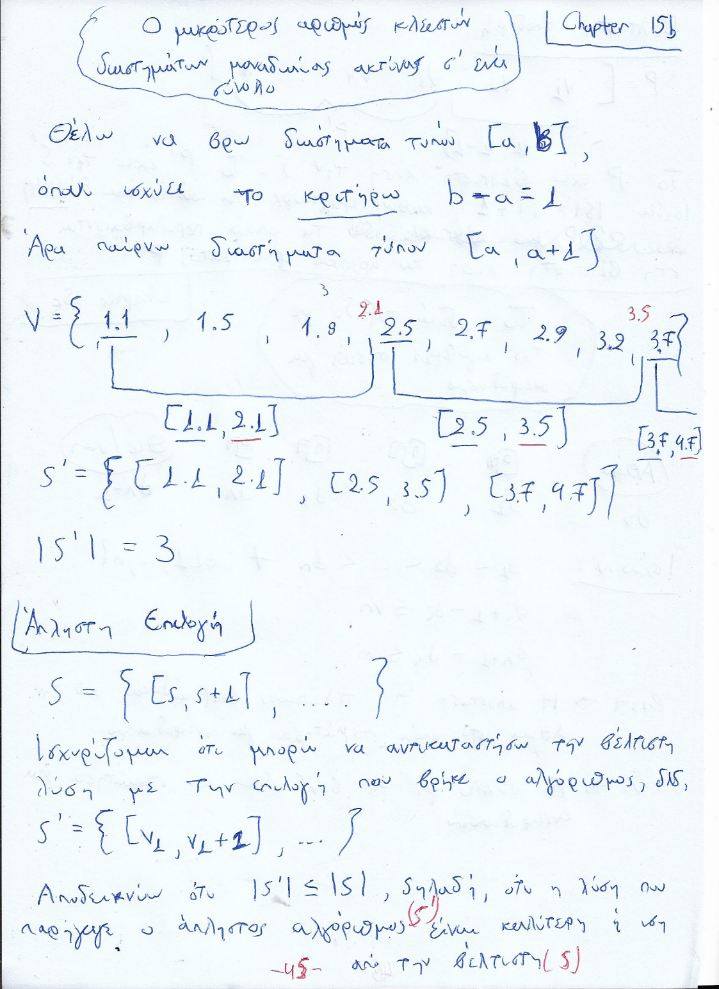 Ο μικρότερος αριθμός κλειστών
Chapter 15b
διαστημάτων μοναδιαίας ακτίνας σ' ένα
σύνολο
Θέλω να βρω διαστήματα τύπου [a, b],
όπου ισχύει το κριτήριο b - a = 1
Άρα παίρνω διαστήματα τύπου [a, a+1]
3
2.1 3.5
V = { 1.1, 1.5, 1.8, 2.5, 2.7, 2.9, 3.2, 3.7 }
[1.1, 2.1] [2.5, 3.5] [3.7, 4.7]
S' = { [1.1, 2.1], [2.5, 3.5], [3.7, 4.7] }
|S'| = 3
Άπληστη Επιλογή
S = { [s, s+1], .... }
Ισχυρίζομαι ότι μπορώ να αντικαταστήσω την βέλτιστη
λύση με την επιλογή που βρήκε ο αλγόριθμος, δλδ,
S' = { [v1, v1+1], ... }
Αποδεικνύω ότι |S'| ≤ |S|, δηλαδή, ότι η λύση που
παρήγαγε ο άπληστος αλγόριθμος (S') είναι καλύτερη ή ίση
-45- από την βέλτιστη (S)